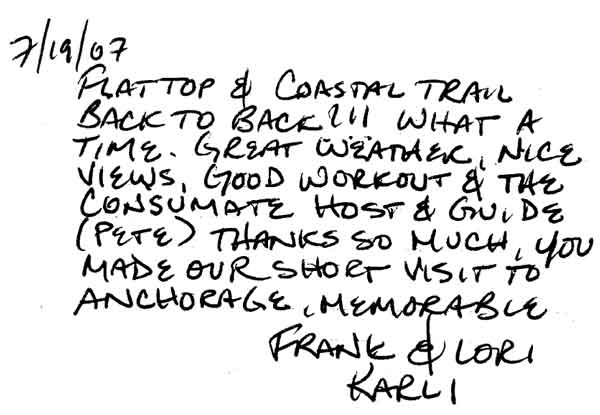 7/19/07
FLATTOP & COASTAL TRAIL
BACK TO BACK!!! WHAT A
TIME. GREAT WEATHER, NICE
VIEWS, GOOD WORKOUT & THE
CONSUMATE HOST & GUIDE
(PETE) THANKS SO MUCH, YOU
MADE OUR SHORT VISIT TO
ANCHORAGE, MEMORABLE
FRANK & LORI
KARLI